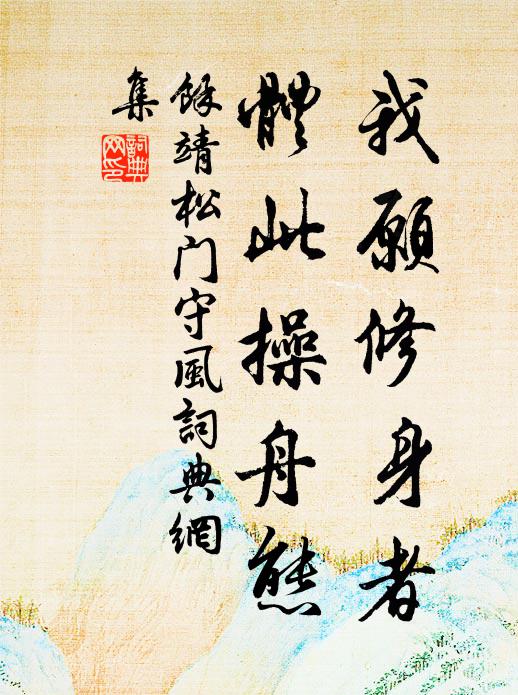 我願修身者
體此操舟態
餘靖松门守風詞典網
集
詞典网印